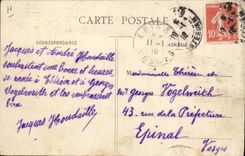 CARTE POSTALE
CORRESPONDANCE
Jacques et André Houdaille
souhaitent une bonne et heureuse
année à Thérèse et à Georges
Vogelweith et les embrassent
bien
Jacques Houdaille
ADRESSE
EPINAL
11-1
10
Mademoiselle Thérèse et
Mr Georges Vogelweith
43, rue de la Préfecture
Epinal
Vosges